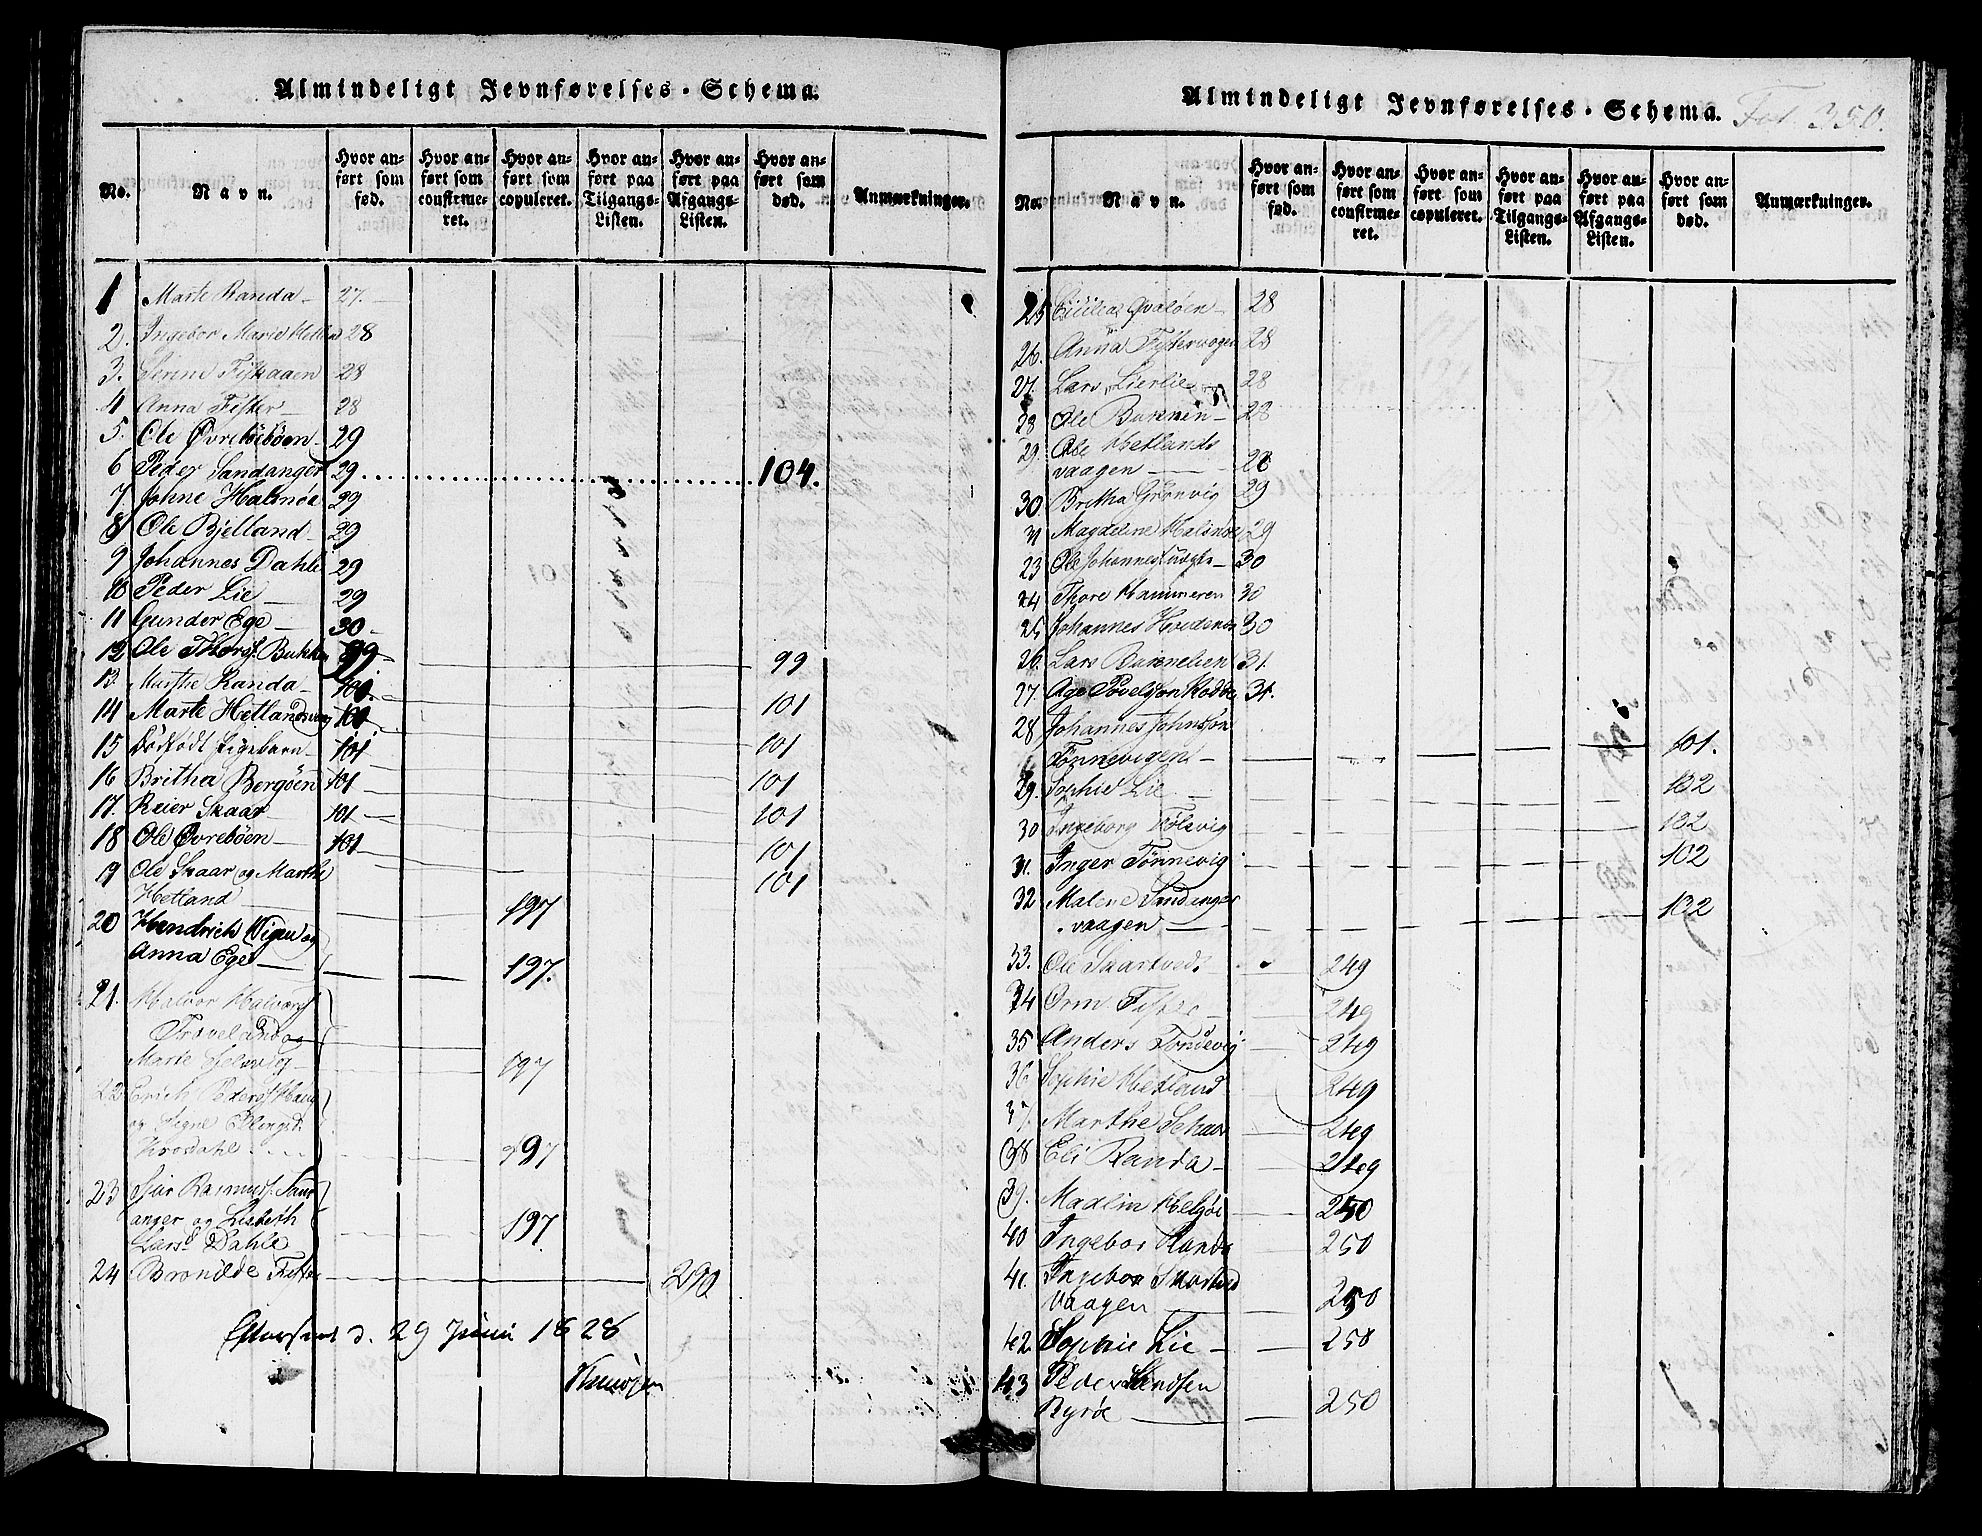 Almindeligt Jevnførelses-Schema.
No. Navn. Hvor anført som fød. Hvor anført som confirmeret. Hvor anført som copuleret. Hvor anført paa Tilgangs-Listen. Hvor anført paa Afgangs-Listen. Hvor anført som død. Anmærkninger.
1 Marte Randa 27.
2. Ingebor Marie 28
3. 28
4 Anna Fister 28
5. Ole Øvrebøen 29
6 Peder Sandanger 29 104.
7 Johne Halsnøe 29
8 Ole Bjelland 29
9 Johannes Dahle 29
10 Peder Lie 29
11 Gunder Ege 30
12 Ole Thors. Bukken 99 99
13. Marthe Randa 100 101
14 Marte Hetlandsvog 100 101
15 Dødfødt Pigebarn 101 101
16 Britha Bergøen 101 101
17. Reier Skaar 101 101
18 Ole Øvrebøen 101 101
19 Ole Skaar og Marthe
Hetland 197
20 Hendrich Vigen og
Anna Ege 197.
21. Halvor Halvors.
og
Marte 197
22 Erich Peders.
og Signe
197
23 Siur Rasmus.
anger og Lisbeth
Lars. Dahle 197
24 Bronilde Fister 290
d. 29 Juni 1828
Almindeligt Jevnførelses-Schema. Fol. 350.
No. Navn. Hvor anført som fød. Hvor anført som confirmeret. Hvor anført som copuleret. Hvor anført paa Tilgangs-Listen. Hvor anført paa Afgangs-Listen. Hvor anført som død. Anmærkninger.
25 Cicilia Qvaløen 28
26. Anna Fistervogen 28
27. Lars Lierlie 28
28 Ole 28
29. Ole Hetlands
vaagen 28
30 Britha Grønvig 29
31 Magdelene Halsnøe 29
23 Ole Johannes 30
24 Thore Hammeren 30
25 Johannes 30
26. Lars 31.
27. Age Povelson 31.
28 Johannes Johnsøn
Tønnevigen 101.
29. Sophie Lie 102
30 Ingeborg 102
31. Inger Tønnevig 102
32 Malene Sandanger
vaagen 102
33. Ole Skartved 249
34 Orm Fister 249
35 Anders Tønnevig 249
36 Sophie Hetland 249
37. Marthe Schaar 249
38 Eli Randa 249
39. Madlin Helgøe 250
40 Ingebor Randa 250
41. Ingebor Skartved
Vaagen 250
42 Sophie Lie 250
43 Peder
Byrøe 250